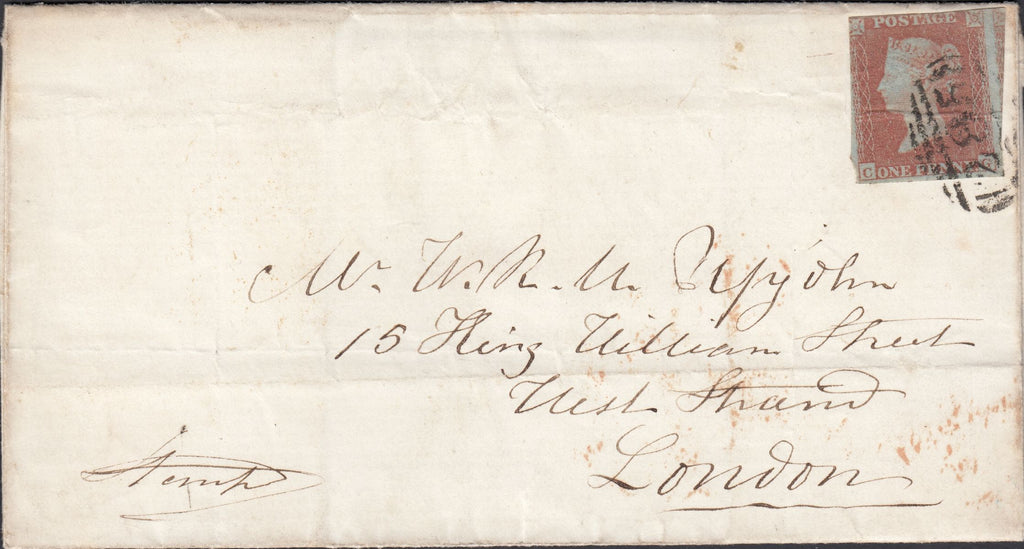 POSTAGE
C ONE PENNY
Mr. W. R. M. Upjohn
15 King William Street
West Strand
London
Stamp